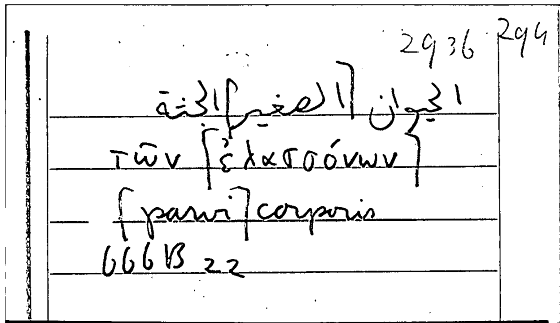 2936 294
الحيوان [الصغير] الجثة
τῶν [ἐλασσόνων]
[parvi] corporis
666B 22